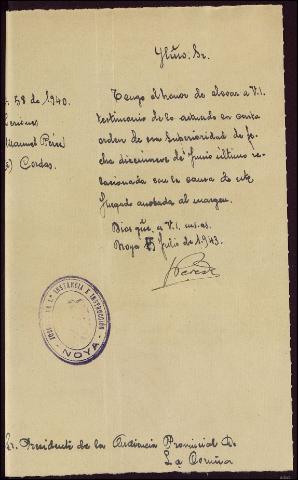 Yltmo. Sr.
58 de 1940.
Lesiones
Manuel Pérez
Cordas.
Tengo el honor de elevar a V.I.
testimonio de lo actuado en carta
orden de esa Superioridad de fe-
cha diecinueve de Junio último re-
lacionada con la causa de este
Juzgado anotada al margen.
Dios gûe. a V.I. ms. as.
Noya Julio de 1943.
1ª INSTANCIA E INSTRUCCIÓN
NOYA
Sr. Presidente de la Audiencia Provincial de
La Coruña